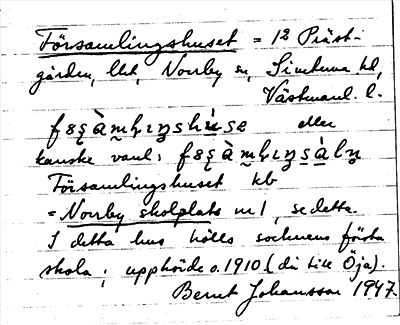 Församlingshuset = 12 Präst-
gården, lht, Norrby sn, Simtuna hd,
Västmanl. l.
eller
kanske vanl:
Församlingshuset kb
= Norrby skolplats nr 1, se detta.
I detta hus hölls socknens första
skola; upphörde o. 1910 (då till Öja).
Bernt Johansson 1947.